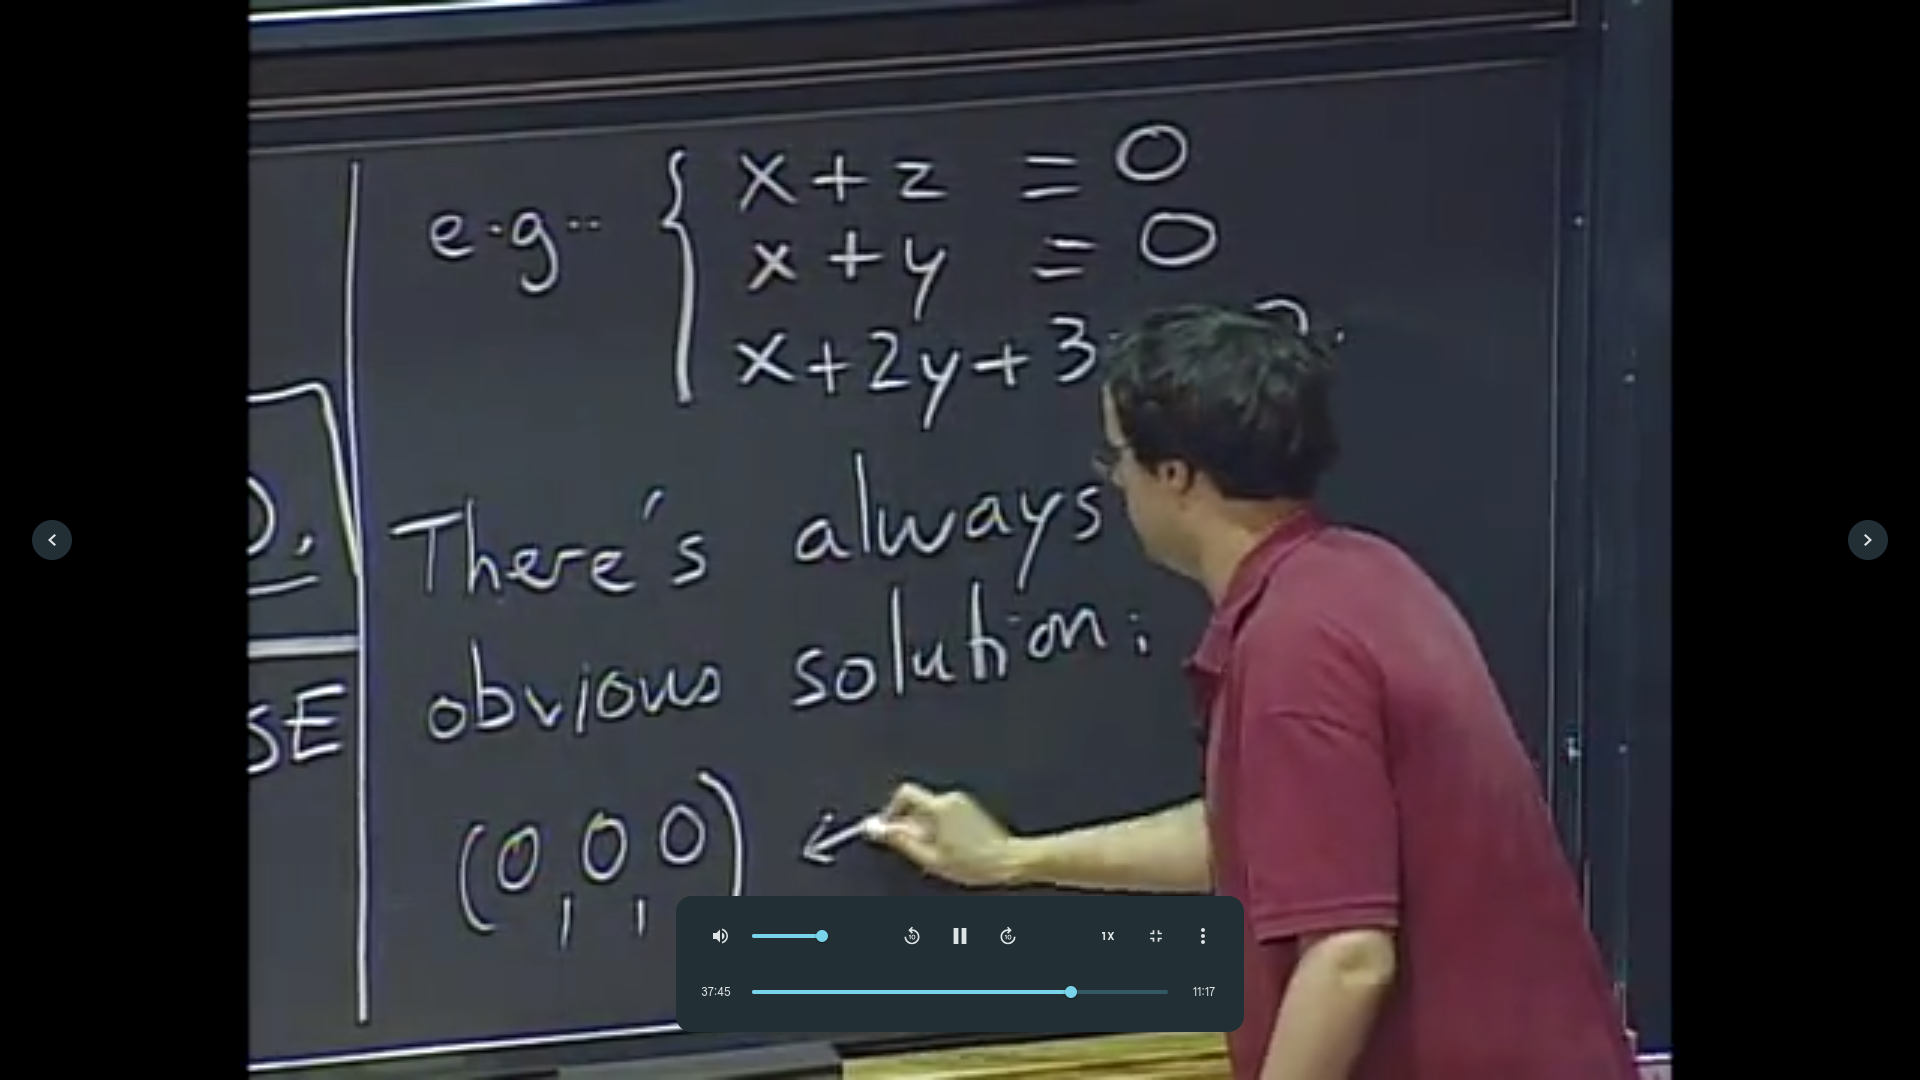 e.g.
x + z = 0
x + y = 0
x + 2y + 3
There's always
obvious solution:
(0,0,0)
SE
1X
37:45
11:17